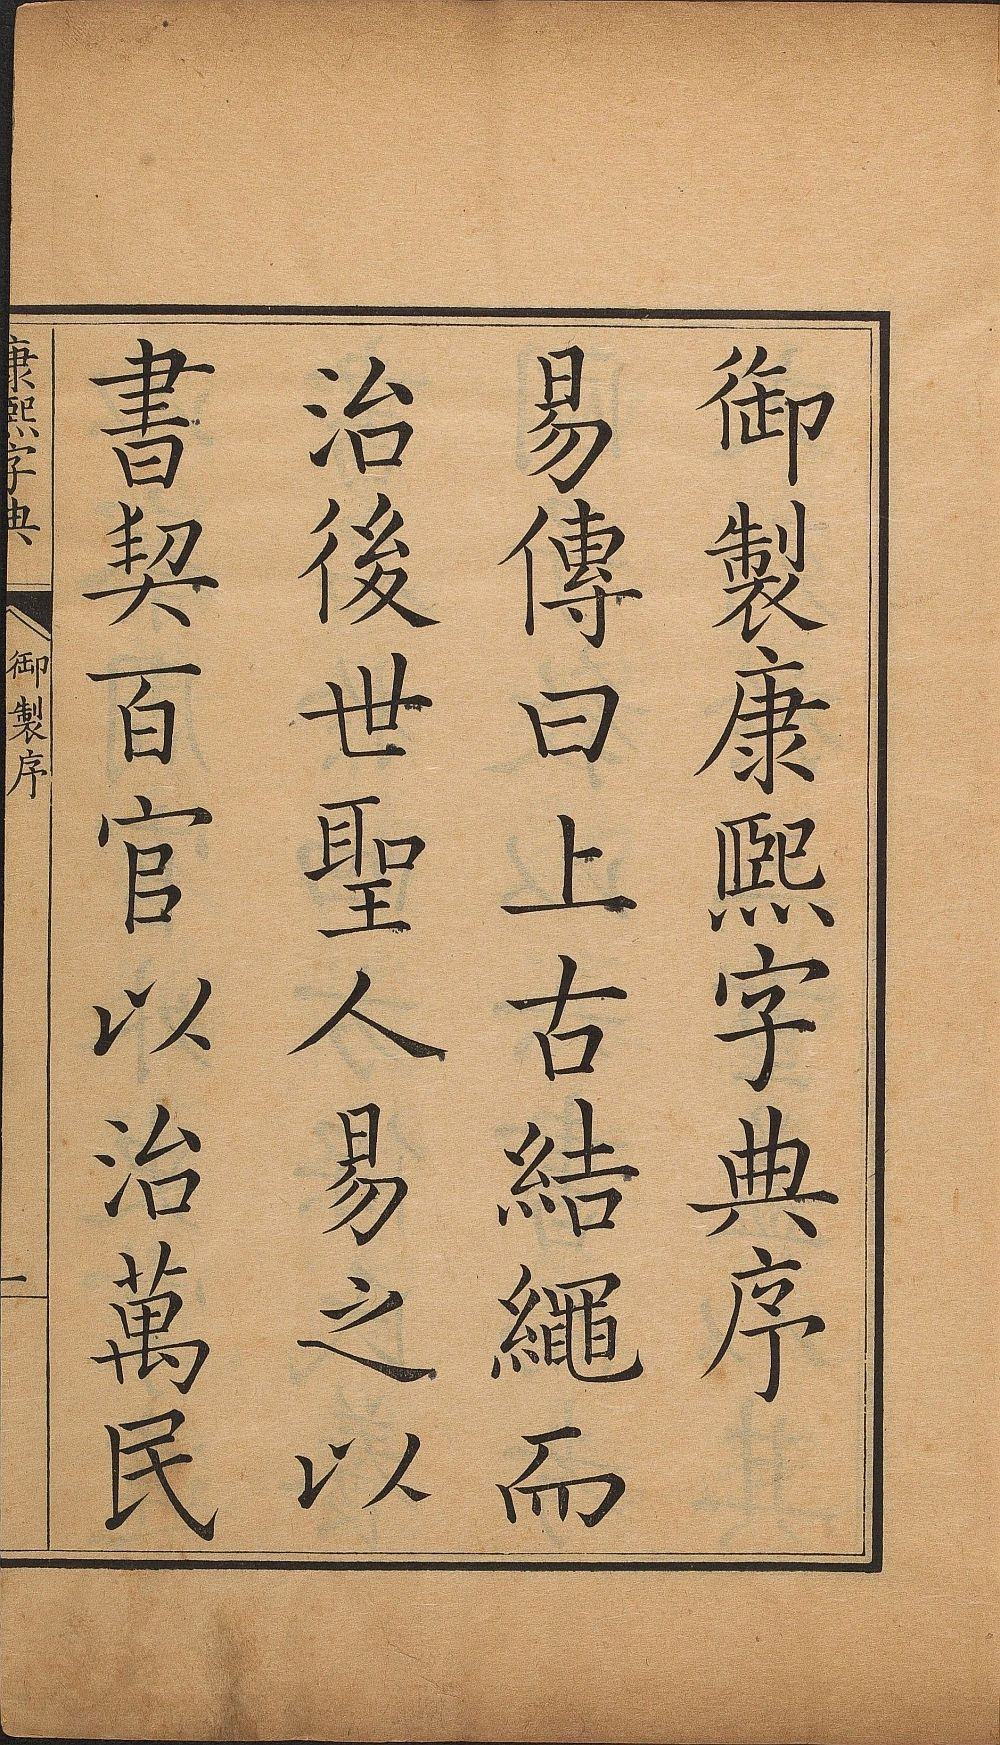 御製康熙字典序
易傳曰上古結繩而
治後世聖人易之以
書契百官以治萬民
康熙字典
御製序
一